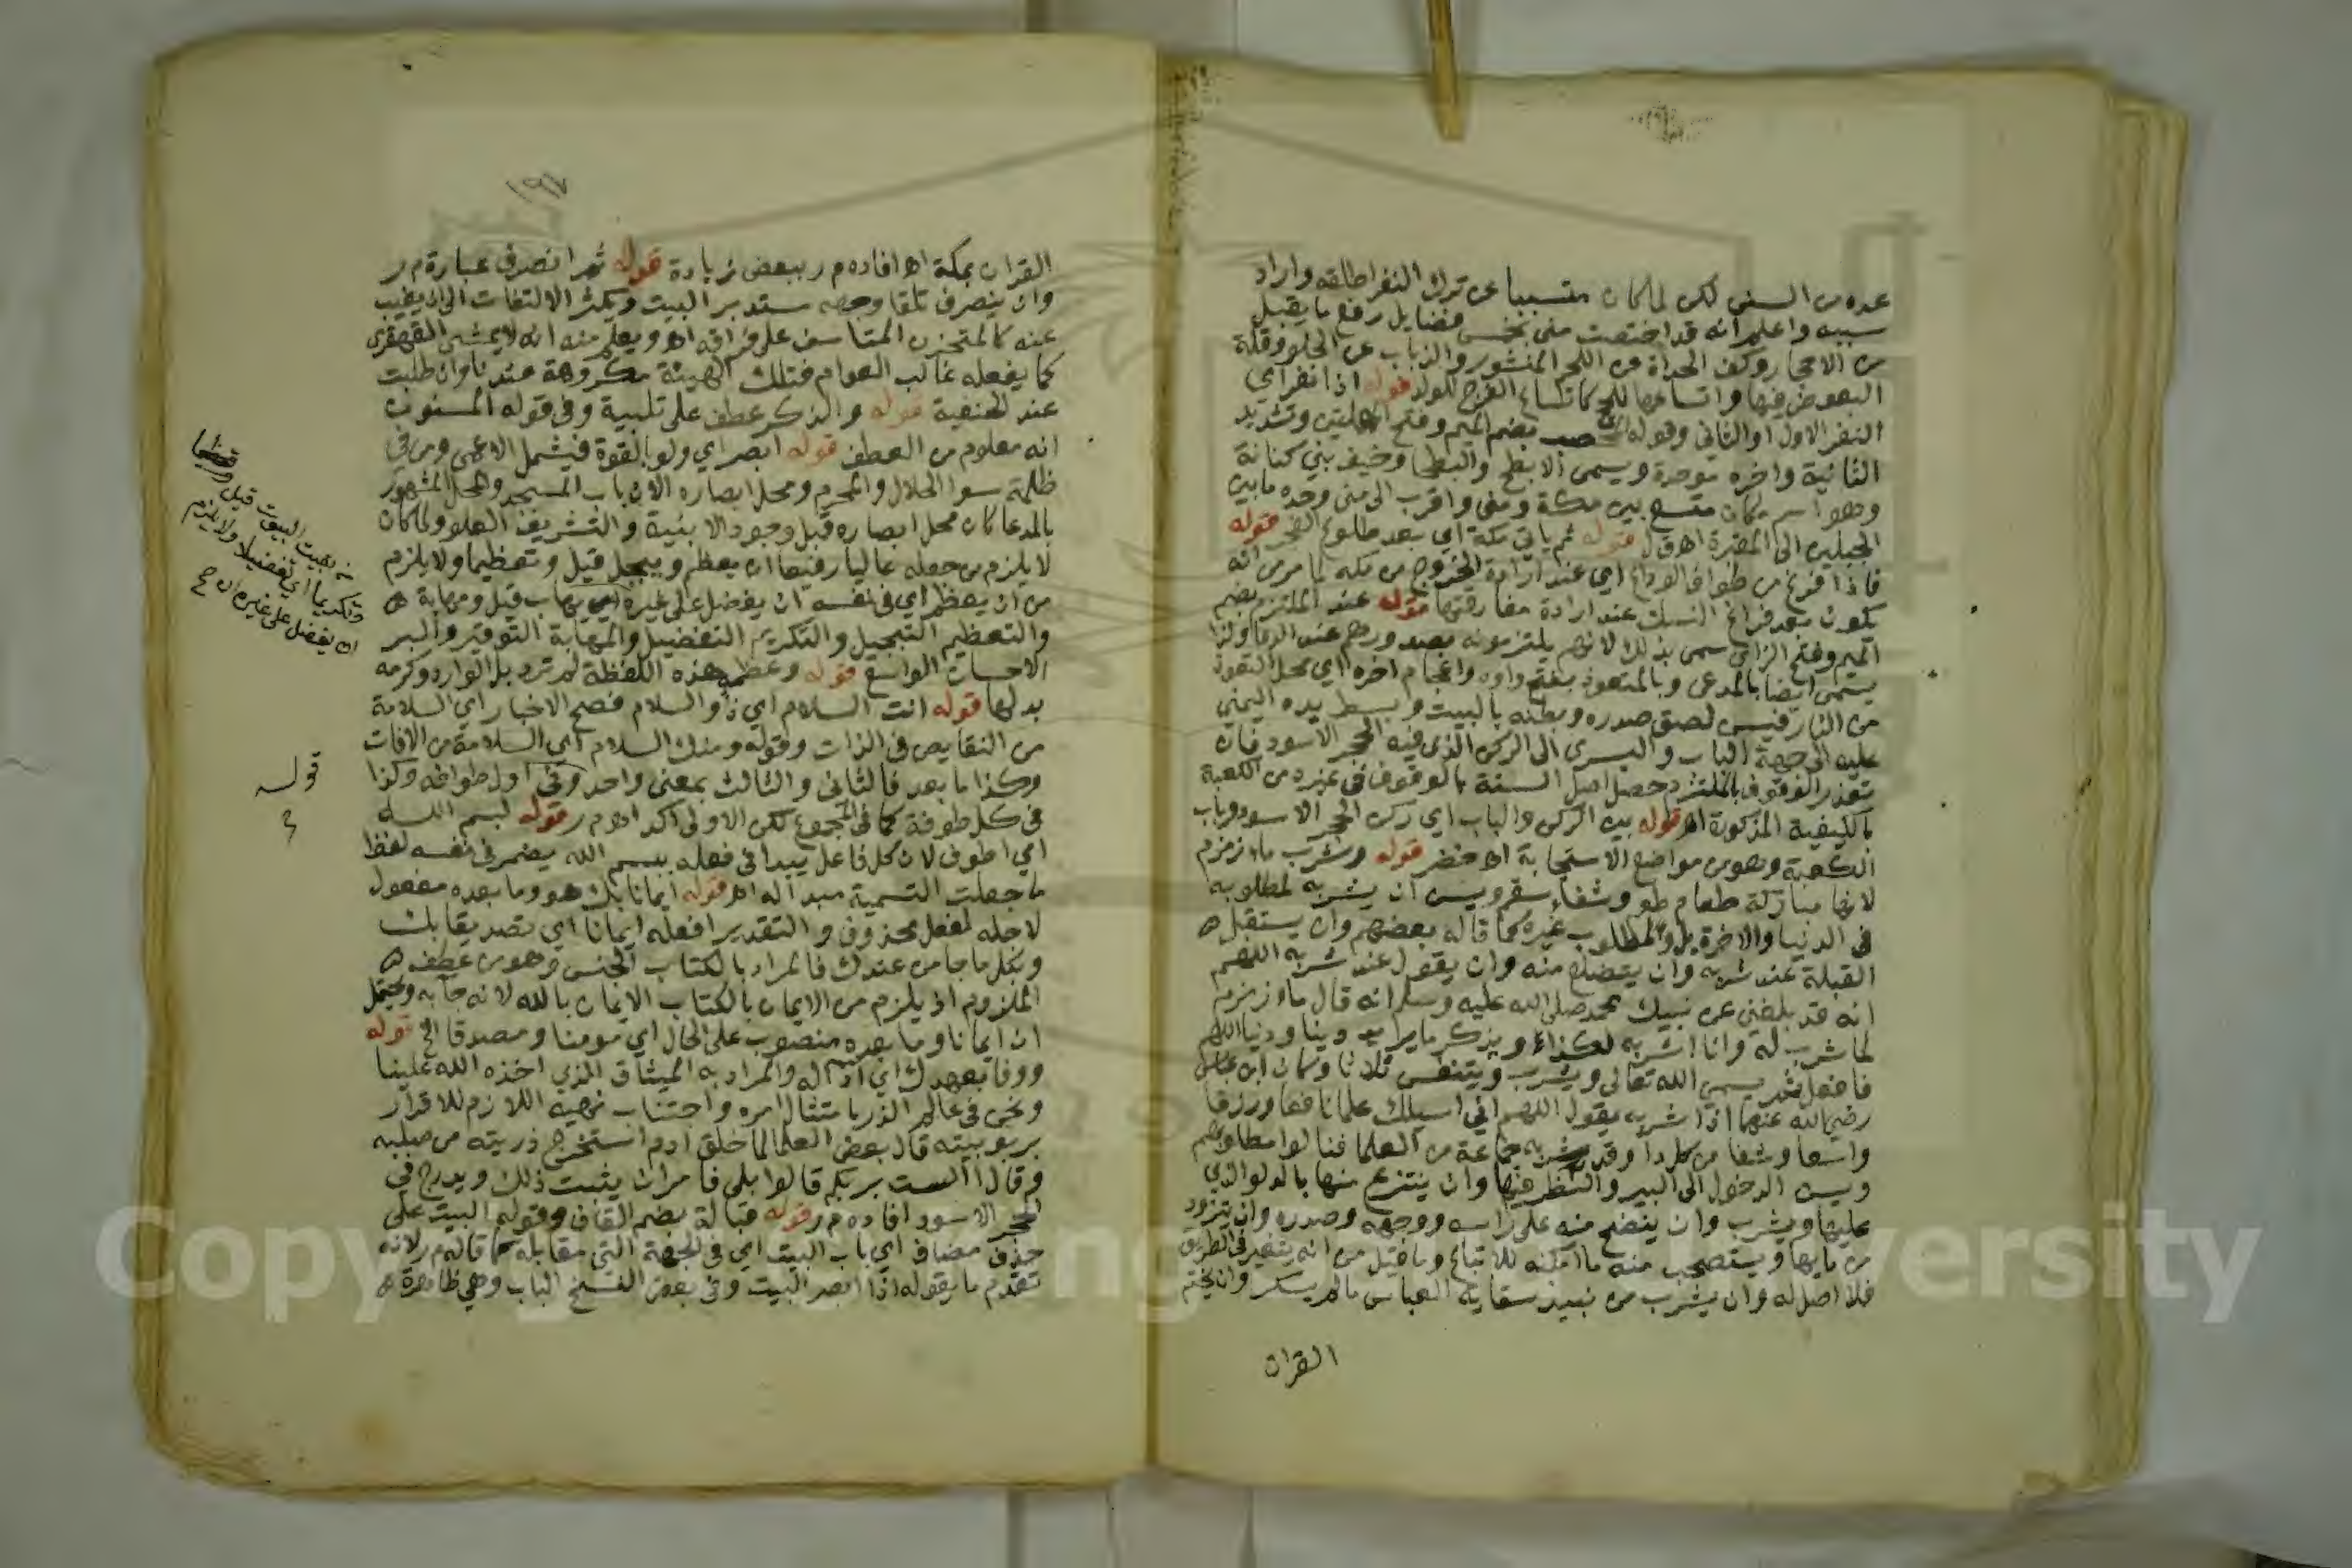 عده من السنن لكن لما كان متسببا عن ترك النفر اطلقه واراد
سببه واعلم انه قد اختصت منى بخمس فضايل رفع ما يقبل
من الاحجار وكف الحداة عن اللحم المنشور والذباب عن الحلو وقلة
البعوض فيها واتساعها للحجاج كاتساع الفرج للولد قوله اذا نفر اي
النفر الاول او الثاني وقوله المحصب بضم الميم وفتح المهملتين وتشديد
الثانية واخره موحدة ويسمى الابطح والبطحا وخيف بني كنانة
وهو اسم مكان متسع بين مكة ومنى واقرب الى منى وحده ما بين
الجبلين الى المقبرة اهـ ق ل قوله ثم ياتي مكة اي بعد طلوع الفجر قوله
فاذا فرغ من طواف الوداع اي عند ارادة الخروج من مكة لما مر من انه
يكون بعد فراغ النسك عند ارادة مفارقتها قوله عند الملتزم بضم
الميم وفتح الزاي سمي بذلك لانهم يلتزمونه بصدورهم عند الدعا ولذا
يسمى ايضا بالمدعى وبالمتعوذ بفتح واوه واعجام اخره اي محل التعوذ
من النار فيسن لصق صدره وبطنه بالبيت وبسط يده اليمنى
عليه الى جهة الباب واليسرى الى الركن الذي فيه الحجر الاسود فان
تعذر الوقوف بالملتزم حصل اصل السنة بالوقوف في غيره من الكعبة
بالكيفية المذكورة اهـ قوله بين الركن والباب اي ركن الحجر الاسود وباب
الكعبة وهو من مواضع الاستجابة اهـ خضر قوله وشرب ماء زمزم
لانها مباركة طعام طعم وشفاء سقم ويسن ان يشربه لمطلوبه
في الدنيا والاخرة بل ولمطلوب غيره كما قاله بعضهم وان يستقبل
القبلة عند شربه وان يتضلع منه وان يقول عند شربه اللهم
انه قد بلغني عن نبيك محمد صلى الله عليه وسلم انه قال ماء زمزم
لما شرب له وانا اشربه لكذا ويذكر ما يريد دينا ودنيا اللهم
فافعل ثم يسمي الله تعالى ويشرب ويتنفس ثلاثا وكان ابن عباس
رضي الله عنهما اذا شربه يقول اللهم اني اسيلك علما نافعا ورزقا
واسعا وشفا من كل دا وقد شربه جماعة من العلما فنالوا مطلوبهم
ويسن الدخول الى البير والنظر فيها وان ينتزع منها بالدلو الذي
عليها ويشرب وان ينضح منه على راسه ووجهه وصدره وان يتزود
من مايها ويستصحب منه ما امكنه للاتباع وما قيل من انه يتغير في الطريق
فلا اصل له وان يشرب من نبيذ سقاية العباس ما لم يسكر وان يختم
القران
القران بمكة اهـ افاده م ر ببعض زيادة قوله ثم انصرف عبارة م ر
وان ينصرف تلقا وجهه مستدبر البيت ويكثر الالتفات الى ان يغيب
عنه كالمتحزن المتاسف على فراقه اهـ ويعلم منه انه لا يمشي القهقرى
كما يفعله غالب العوام فتلك الهيئة مكروهة عندنا وان طلبت
عند الحنفية قوله والذكر عطف على تلبية وفي قوله المسنون
انه معلوم من العطف قوله ابصر اي ولو بالقوة فيشمل الاعمى ومن في
ظلمة سوا الحلال والمحرم ومحل ابصاره الان باب المسجد والمحل المشهور
بالمدعا كان محل ابصاره قبل وجود الابنية والتشريف العلو ولما كان
لا يلزم من جعله عاليا رفيعا ان يعظم ويبجل قيل وتعظيما ولا يلزم
من ان يعظم اي في نفسه ان يفضل على غيره يهاب قيل ومهابة
والتعظيم التبجيل والتكريم التفضيل والمهابة التوقير والبر
الاحسان الواسع قوله وعظمه هذه اللفظة لم ترد بل الوارد وكرمه
بدلها قوله انت السلام اي ذو السلام فصح الاخبار اي السلامة
من النقايص في الذات وقوله ومنك السلام اي السلامة من الافات
وكذا ما بعد فالثاني والثالث بمعنى واحد وفي اول طوافه وكذا
في كل طوفة كما في المجموع لكن الاولى اكد اهـ م ر قوله بسم الله
اي اطوف لان كل فاعل يبدا في فعله ببسم الله يضمر في نفسه لفظ
ما جعلت التسمية مبدا له اهـ قوله ايمانا بك هو وما بعده مفعول
لاجله لفعل محذوف والتقدير افعله ايمانا اي تصديقا بك
وبكل ما جا من عندك فالمراد بالكتاب الجنس وهو من عطف
الملزوم اذ يلزم من الايمان بالكتاب الايمان بالله لانه جا به ويحتمل
ان ايمانا وما بعده منصوب على الحال اي مومنا ومصدقا الخ قوله
ووفا بعهدك اي له والمراد به الميثاق الذي اخذه الله علينا
ونحن في عالم الذر بامتثال امره واجتناب نهيه اللازم للاقرار
بربوبيته قال بعض العلما لما خلق ادم استخرج ذريته من صلبه
وقال الست بربكم قالوا بلى فامر ان يثبت ذلك ويدرج في
الحجر الاسود افاده م ر قوله قبالة بضم القاف وقوله البيت على
حذف مضاف اي باب البيت اي في الجهة التي مقابله كما قاله م ر لانه
تقدم ما يقوله اذا ابصر البيت وفي بعض النسخ الباب وهي ظاهرة
وتكريما اي تفضيلا ولا يلزم
ان يفضل على غيره ان
قوله
١٩٧
Copy
versity